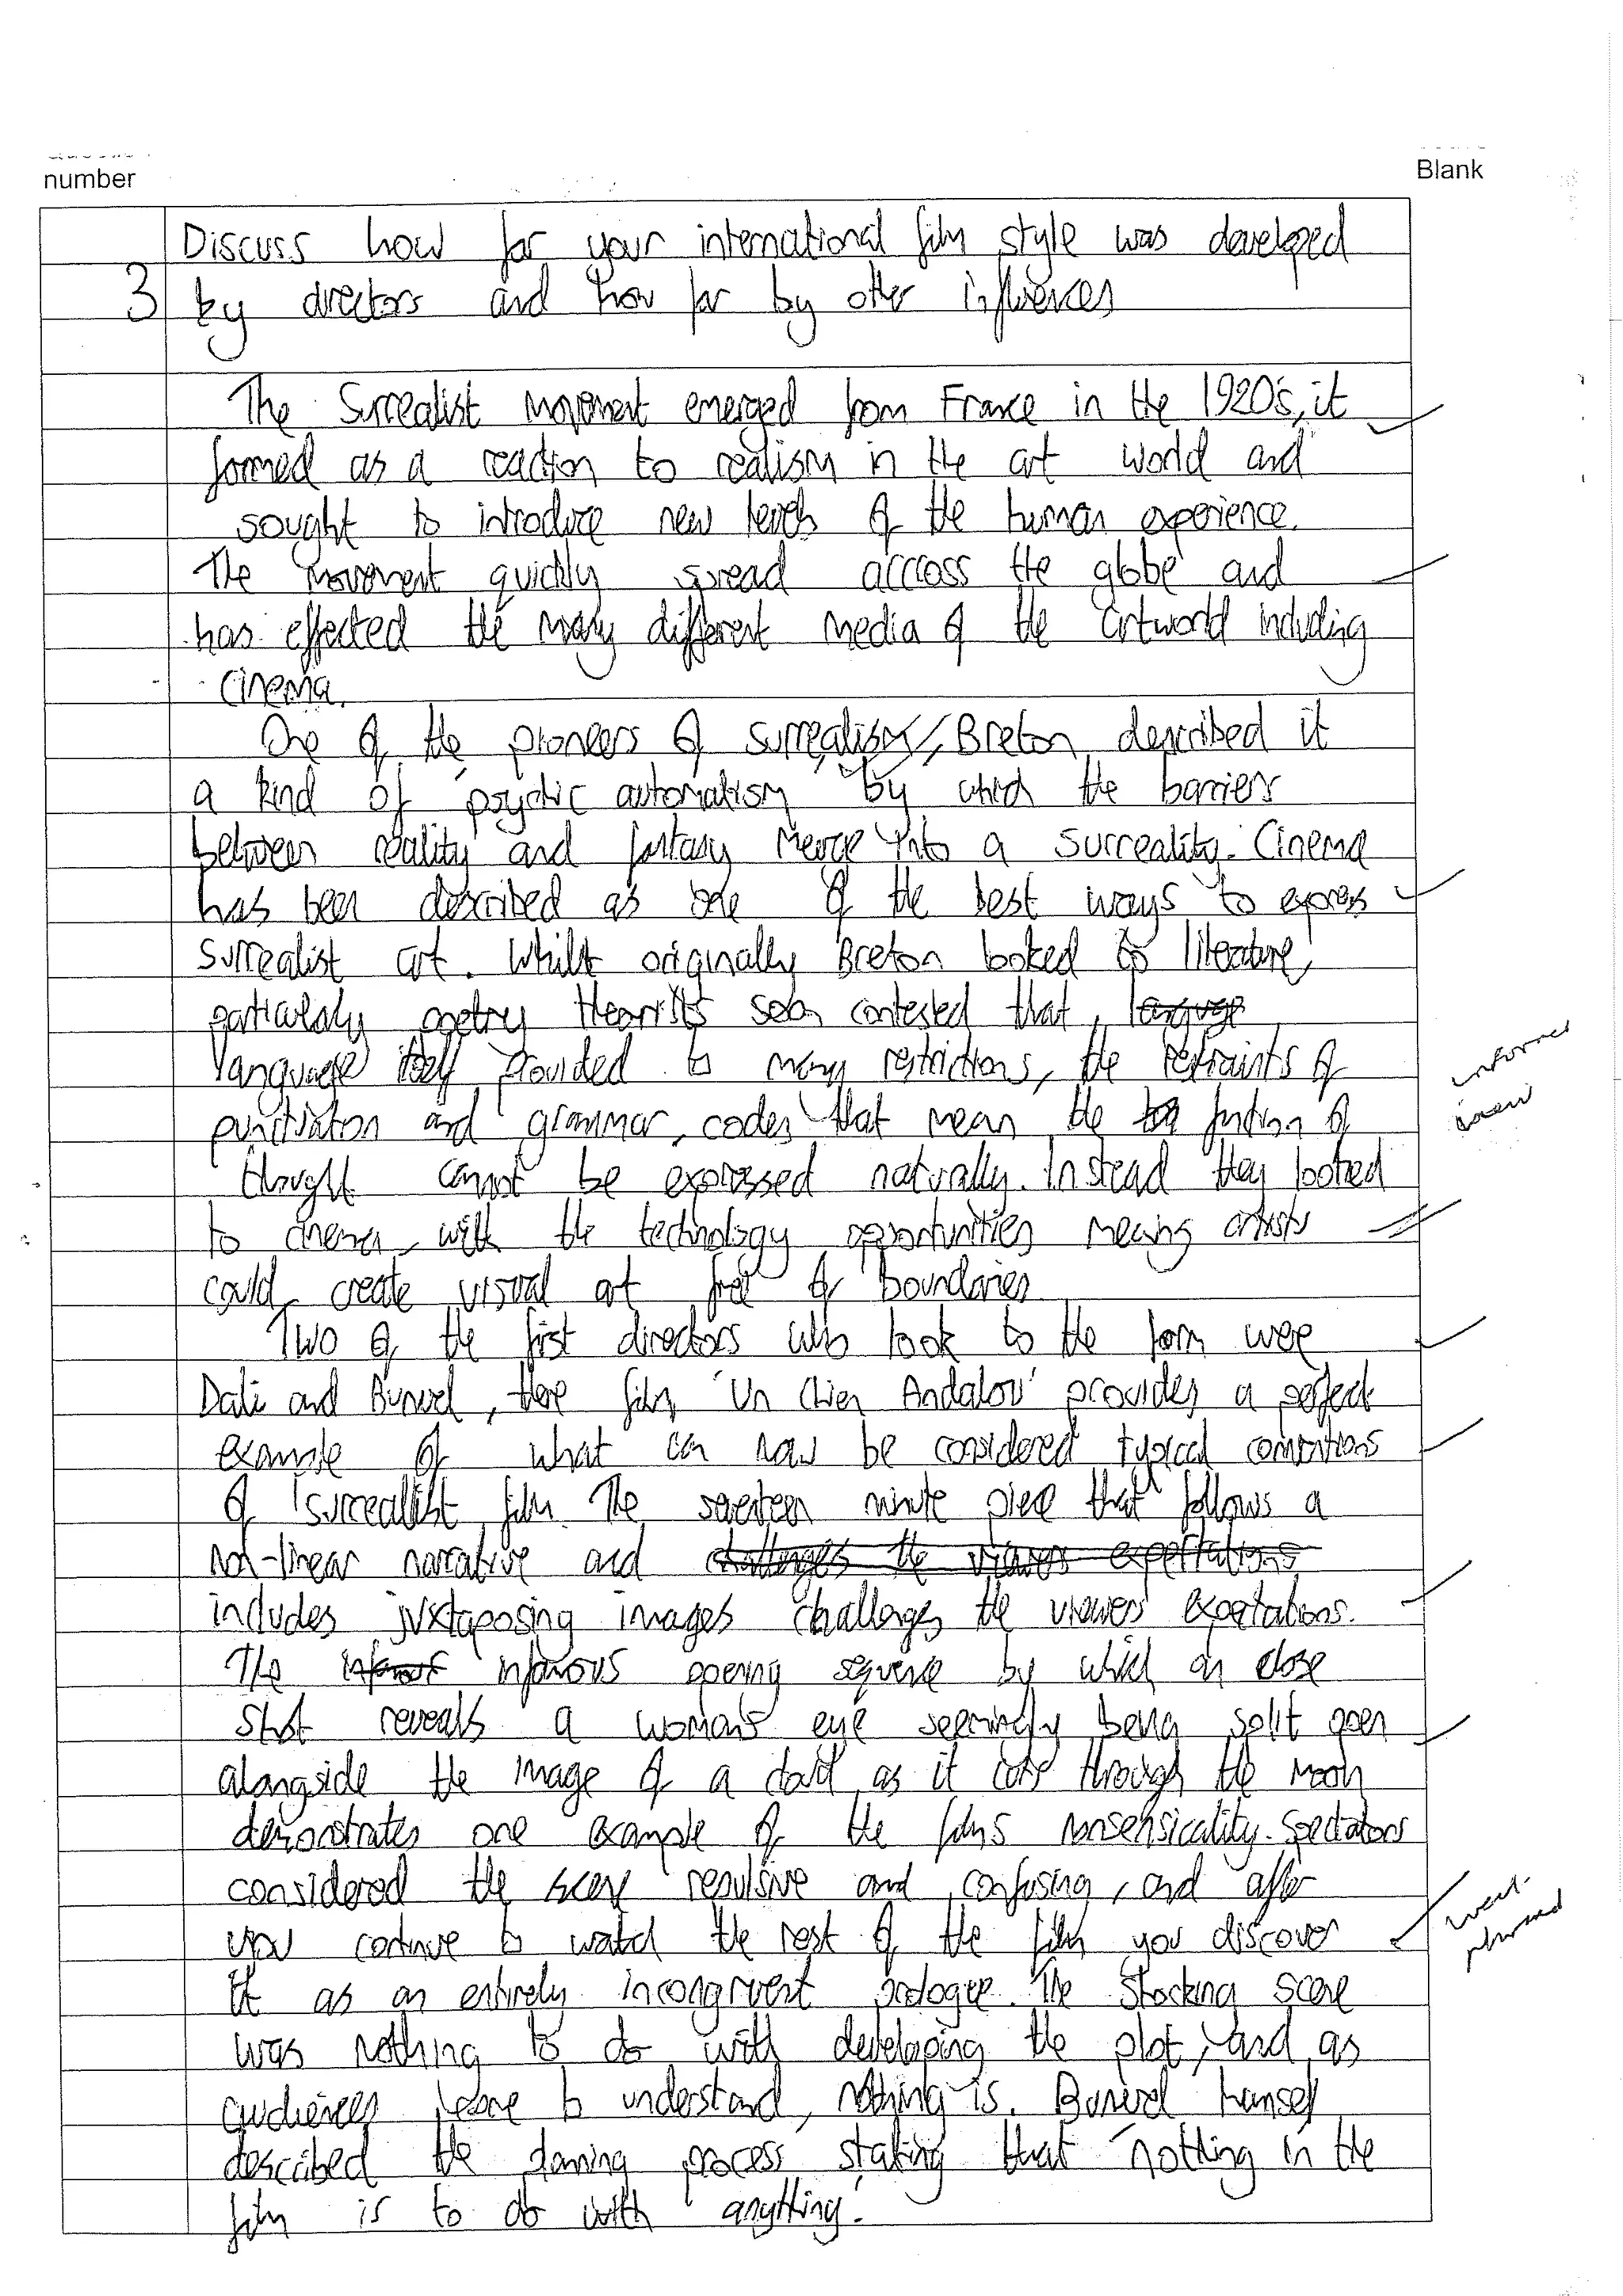 number
Blank
Discuss how far your international film style was developed
3 by directors and how far by other influences
The Surrealist movement emerged from France in the 1920s, it
formed as a reaction to realism in the art world and
sought to introduce new levels of the human experience.
The movement quickly spread accross the globe and
has effected the many different media of the artworld including
cinema.
One of the pioneers of surrealism, Breton described it
a kind of 'psychic automatism' by which the barriers
between reality and fantasy merge into a surreality. Cinema
has been described as one of the best ways to express
surrealist art. Whilst originally Breton looked to literature,
particularly poetry theorists soon contested that, language
language itself provided to many restrictions, the restraints of
punctuation and grammar, codes that mean the function of
thought cannot be expressed naturally. Instead they looked
to cinema, with the technology opportunities meaning artists
could create visual art free of boundaries
informed
view
Two of the first directors who look to the form were
Dali and Bunuel, there film 'Un Chien Andalou' provides a perfect
example of what can now be considered typical conventions
of surrealist film. The seventeen minute piece that follows a
non-linear narrative and challenges the viewers expectations
includes juxtaposing images challenges the viewers expectations.
The infamous opening sequence by which an close
shot reveals a woman's eye seemingly being split goes
alongside the image of a cloud as it cuts through the moon
demonstrates one example of the films nonsensicality. Spectators
considered the scene repulsive and confusing, and after
you continue to watch the rest of the film you discover
it as an entirely incongruent prologue. The shocking scene
was nothing to do with developing the plot, and as
audiences leave to understand, nothing is. Bunuel himself
described the planning process stating that 'nothing in the
film is to do with anything'.
well-
phrased